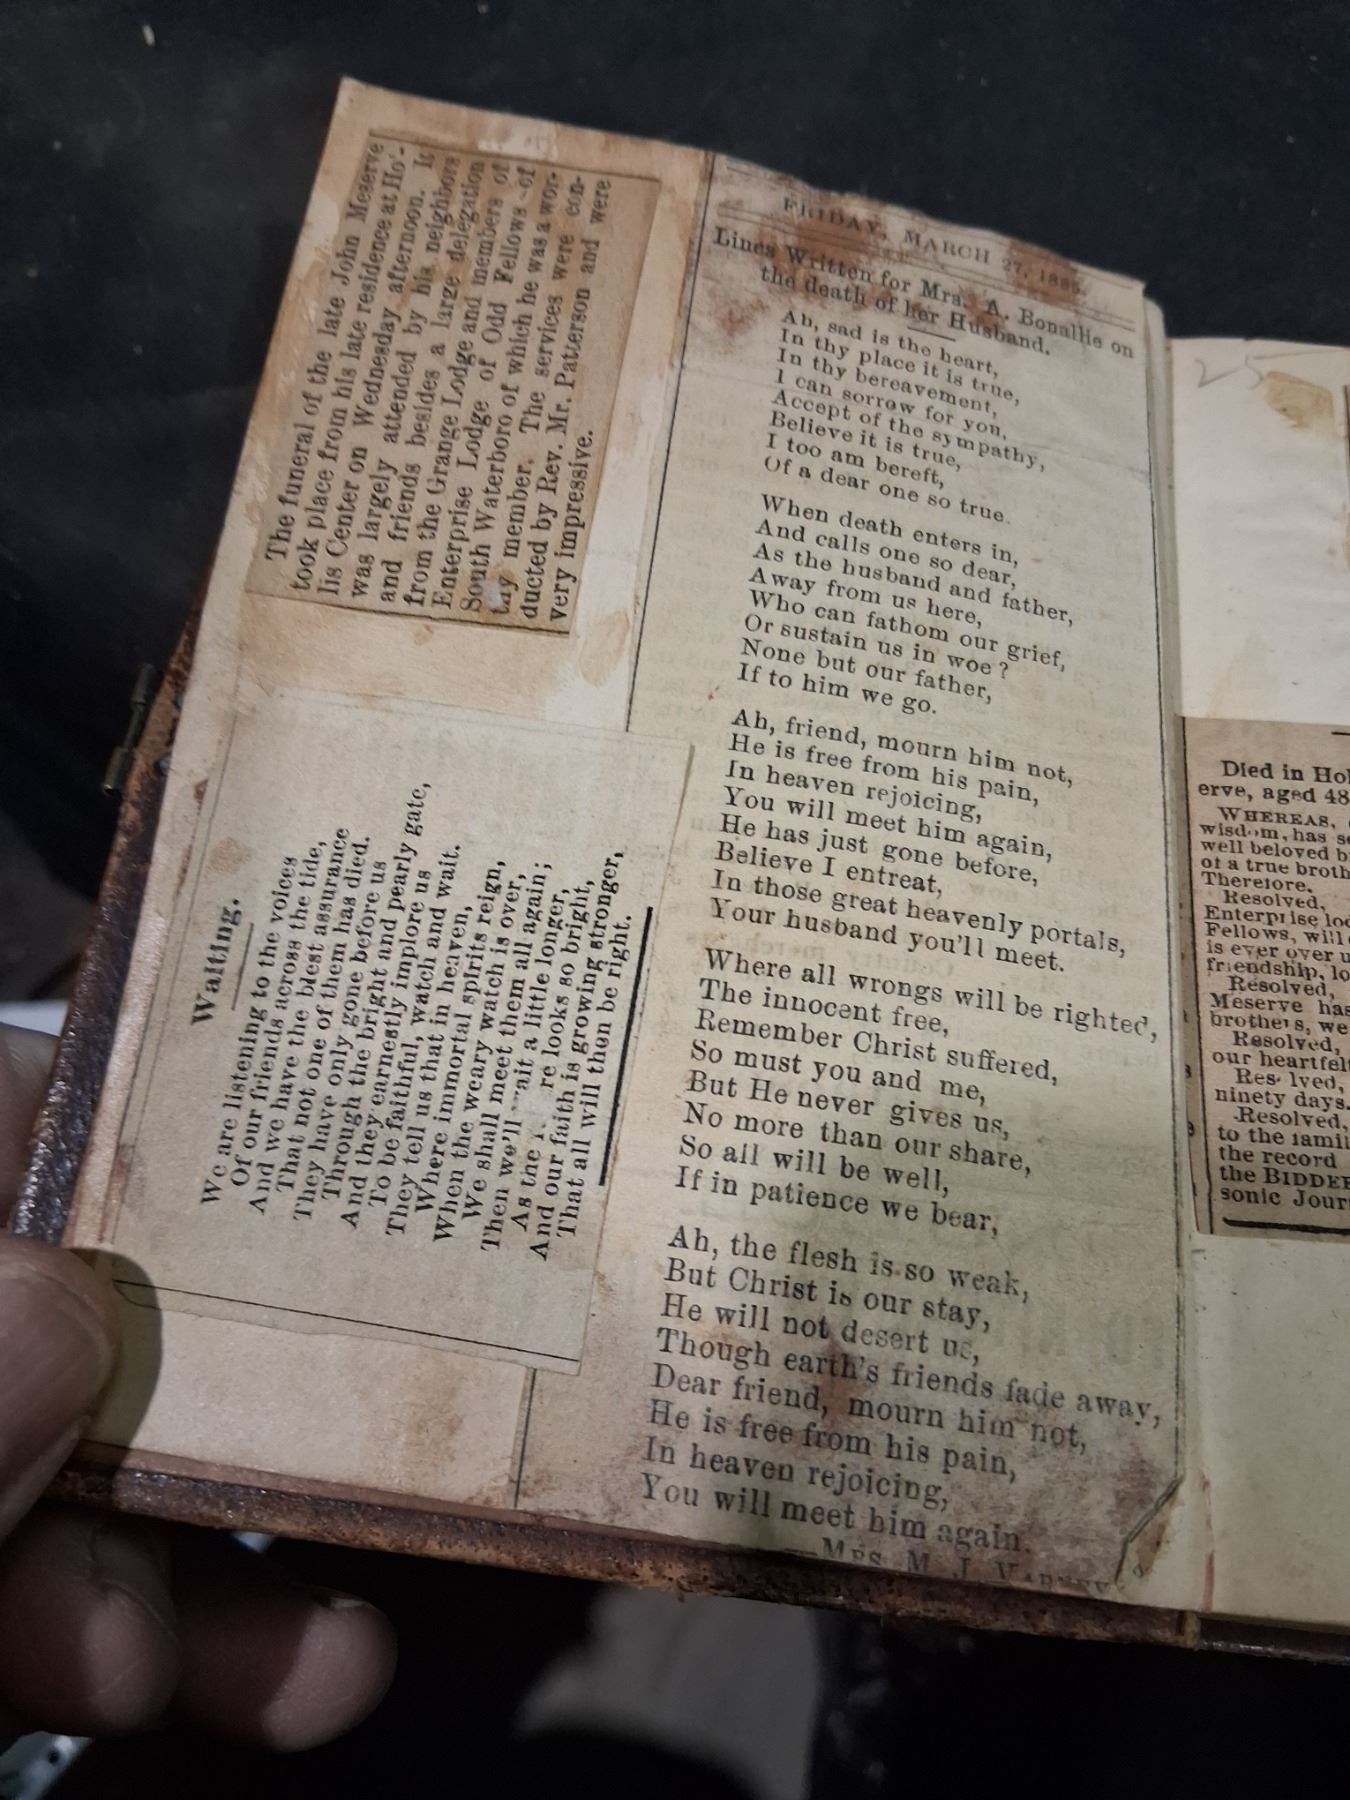 The funeral of the late John Meserve
took place from his late residence at Ho'-
lis Center on Wednesday afternoon. It
was largely attended by his neighbors
and friends besides a large delegation
from the Grange Lodge and members of
Enterprise Lodge of Odd Fellows of
South Waterboro of which he was a wor-
thy member. The services were con-
ducted by Rev. Mr. Patterson and were
very impressive.
Waiting.
We are listening to the voices
Of our friends across the tide,
And we have the blest assurance
That not one of them has died.
They have only gone before us
Through the bright and pearly gate,
And they earnestly implore us
To be faithful, watch and wait.
They tell us that in heaven,
Where immortal spirits reign,
When the weary watch is over,
We shall meet them all again;
Then we'll ait a little longer,
As the re looks so bright,
And our faith is growing stronger,
That all will then be right.
FRIDAY, MARCH 27, 1885.
Lines Written for Mrs. A. Bonallie on
the death of her Husband.
Ah, sad is the heart,
In thy place it is true,
In thy bereavement,
I can sorrow for you,
Accept of the sympathy,
Believe it is true,
I too am bereft,
Of a dear one so true.
When death enters in,
And calls one so dear,
As the husband and father,
Away from us here,
Who can fathom our grief,
Or sustain us in woe?
None but our father,
If to him we go.
Ah, friend, mourn him not,
He is free from his pain,
In heaven rejoicing,
You will meet him again,
He has just gone before,
Believe I entreat,
In those great heavenly portals,
Your husband you'll meet.
Where all wrongs will be righted,
The innocent free,
Remember Christ suffered,
So must you and me,
But He never gives us,
No more than our share,
So all will be well,
If in patience we bear,
Ah, the flesh is so weak,
But Christ is our stay,
He will not desert us,
Though earth's friends fade away,
Dear friend, mourn him not,
He is free from his pain,
In heaven rejoicing,
You will meet him again.
—MRS. M. J. VARNEY
25
Died in Hol
erve, aged 48
WHEREAS,
wisdom, has s
well beloved b
of a true broth
Therefore.
Resolved,
Enterprise lod
Fellows, will
is ever over u
friendship, lo
Resolved,
Meserve has
brothers, we
Resolved,
our heartfelt
Res lved,
ninety days.
Resolved,
to the famil
the record
the BIDDEF
sonic Jour